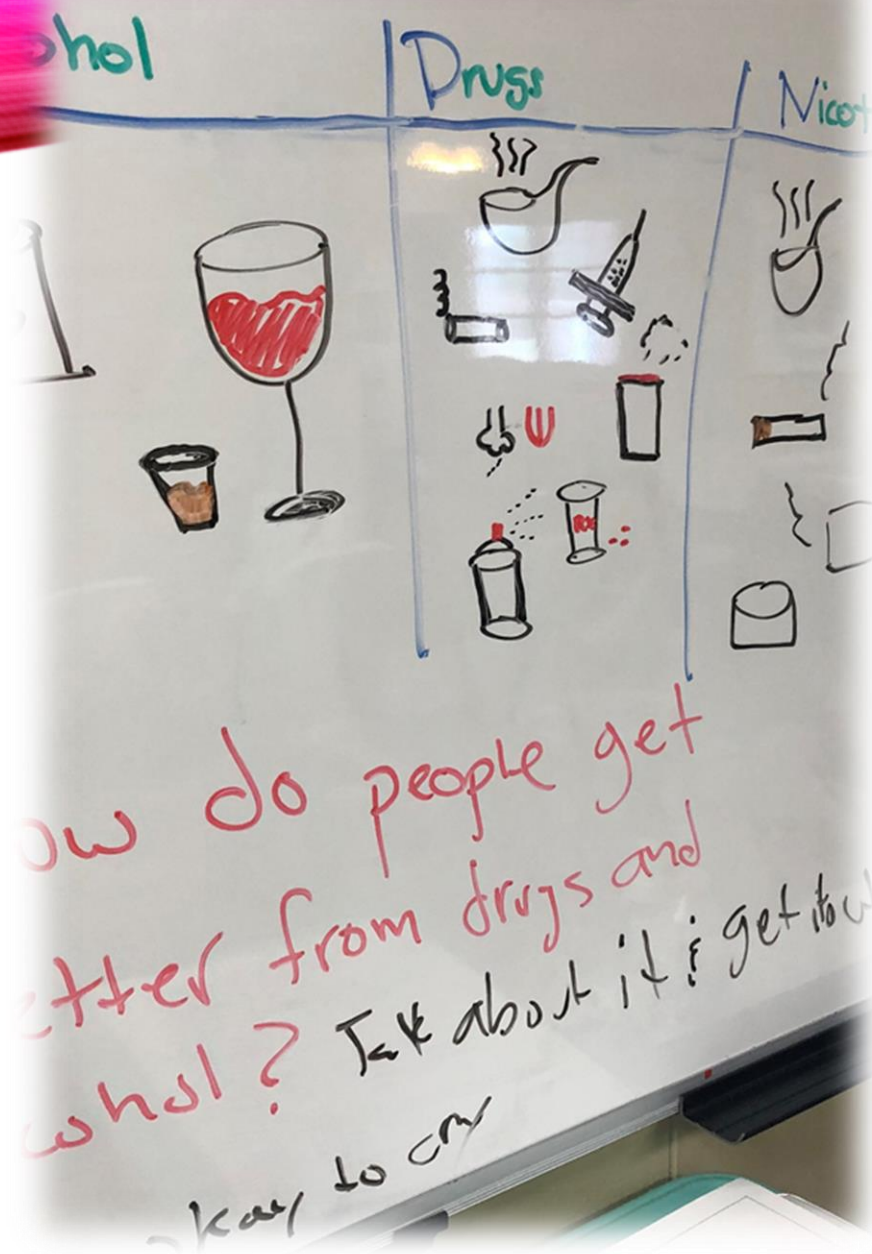 ohol Drugs Nicot
ow do people get
etter from drugs and
ohol? Talk about it & get it ou
okay to cry